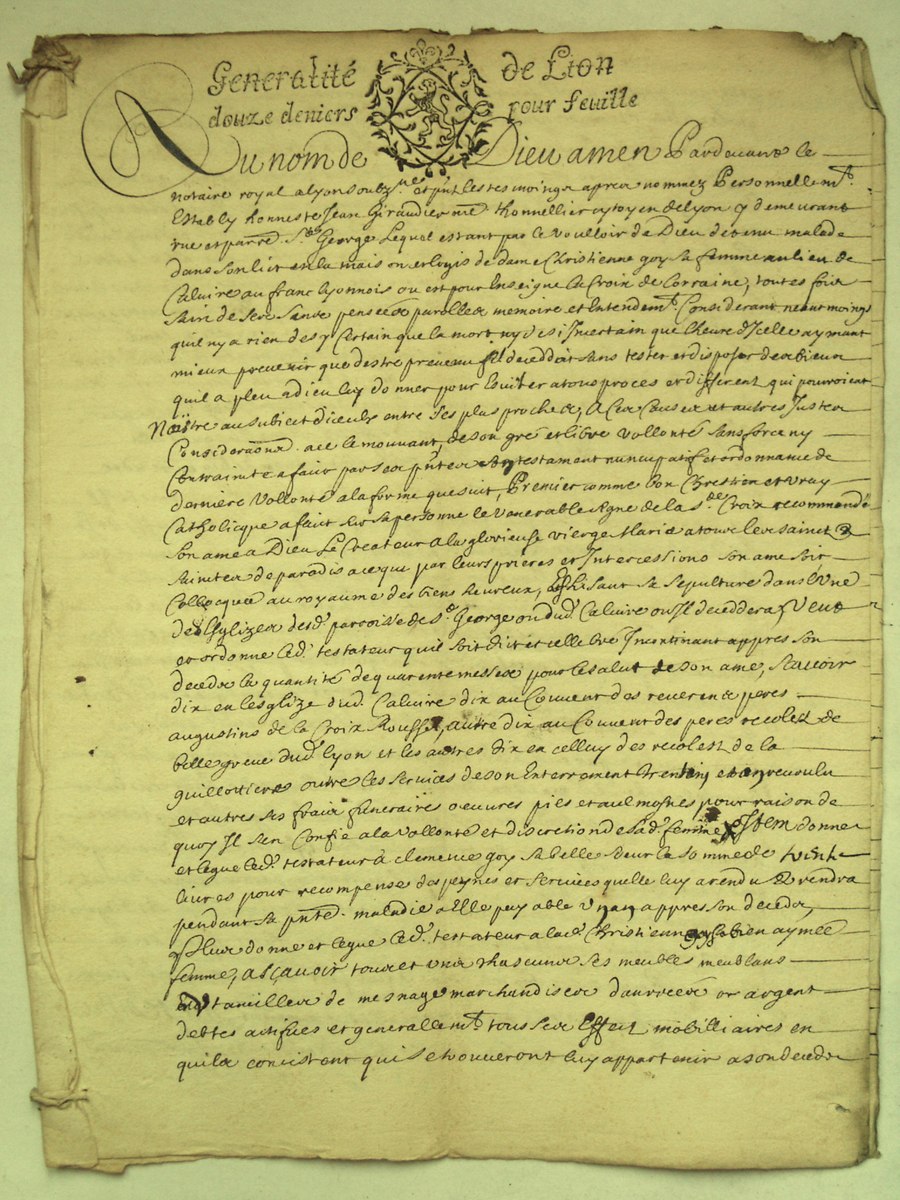 Generalité de Lion
douze deniers pour feuille
Au nom de Dieu amen Pardevant le
notaire royal a lyon soubz.né et pnt les tesmoings apres nommez Personnellemt
Estably honneste Jean Giraudier mre thonnellier cytoyen de lyon y demeurant
rue et parre St George Lequel estant par le voulloir de Dieu detenu malade
dans son lict en la maison et logis de dame Christienne goy sa femme au lieu de
Caluire au franc lyonnois ou est pour Enseigne la Croix de Lorraine, toutes fois
sain de ses sens pensées parolles memoire et Entendemt. Considerant neantmoings
quil ny a rien de sy Certain que la mort ny de si Incertain que lheure d'Icelle aymant
mieux prevenir que destre prevenu sil deceddoit sans tester et disposer des biens
quil a pleu a dieu luy donner pour Esviter a tous proces et different qui pourroient
Naistre au subiect diceulx entre ses plus proches, A Ces Causes et autres Justes
Considerations a ce le mouvant, de son gré et libre vollonté sans force ny
Contrainte a faict par ses pntes son testament nuncupatif et ordonnance de
derniere vollonté a la forme que suit, Premier comme bon Chrestien et vray
Catholicque a faict sur sa personne le venerable signe de la Ste Croix recommandé
son ame a Dieu Le Createur a la glorieuse vierge Marie a tous les saincts &
sainctes de paradis a ce que par leurs prieres et Intercessions son ame soit
Collocquée au royaume des biens heureux, Eslisant sa sepulture dans l'Une
des Esglizes desd. parroisse de St George ou dud. Caluire ou Il deceddera, Veut
et ordonne led. testateur quil soit dict et cellebré Incontinant appres son
decedz la quantité de quarente messes pour le salut de son ame, Scavoir
dix en lesglize dud. Caluire dix au Couvent des reverends peres
augustins de la Croix Rousse, autre dix au Couvent des peres recolest de
belle greve dud. lyon et les autres dix en celluy des recolest de la
guillottiere outre les services de son Enterrement trentain et an revoulu
et autres ses fraix funeraires oeuvres pies et aulmosnes pour raison de
quoy Il sen Confie a la vollonté et discretion de sad. femme Item donne
et legue led. testateur à clemence goy sa belle soeur la somme de trente
livres pour recompense des peynes et services quelle luy a rendu & rendra
pendant sa pnte. maladie a Elle payable Un an appres son decedz,
Plus donne et legue led. testateur a lad. Christienne goy sa bien aymée
femme, ascavoir tous et uns chascuns ses meubles meublans
ustancilles de mesnage marchandises danrrées or argent
debtes actifves et generallemt. tous ses Effect mobilliaires en
quils concistent qui se trouveront luy appartenir a son decedz